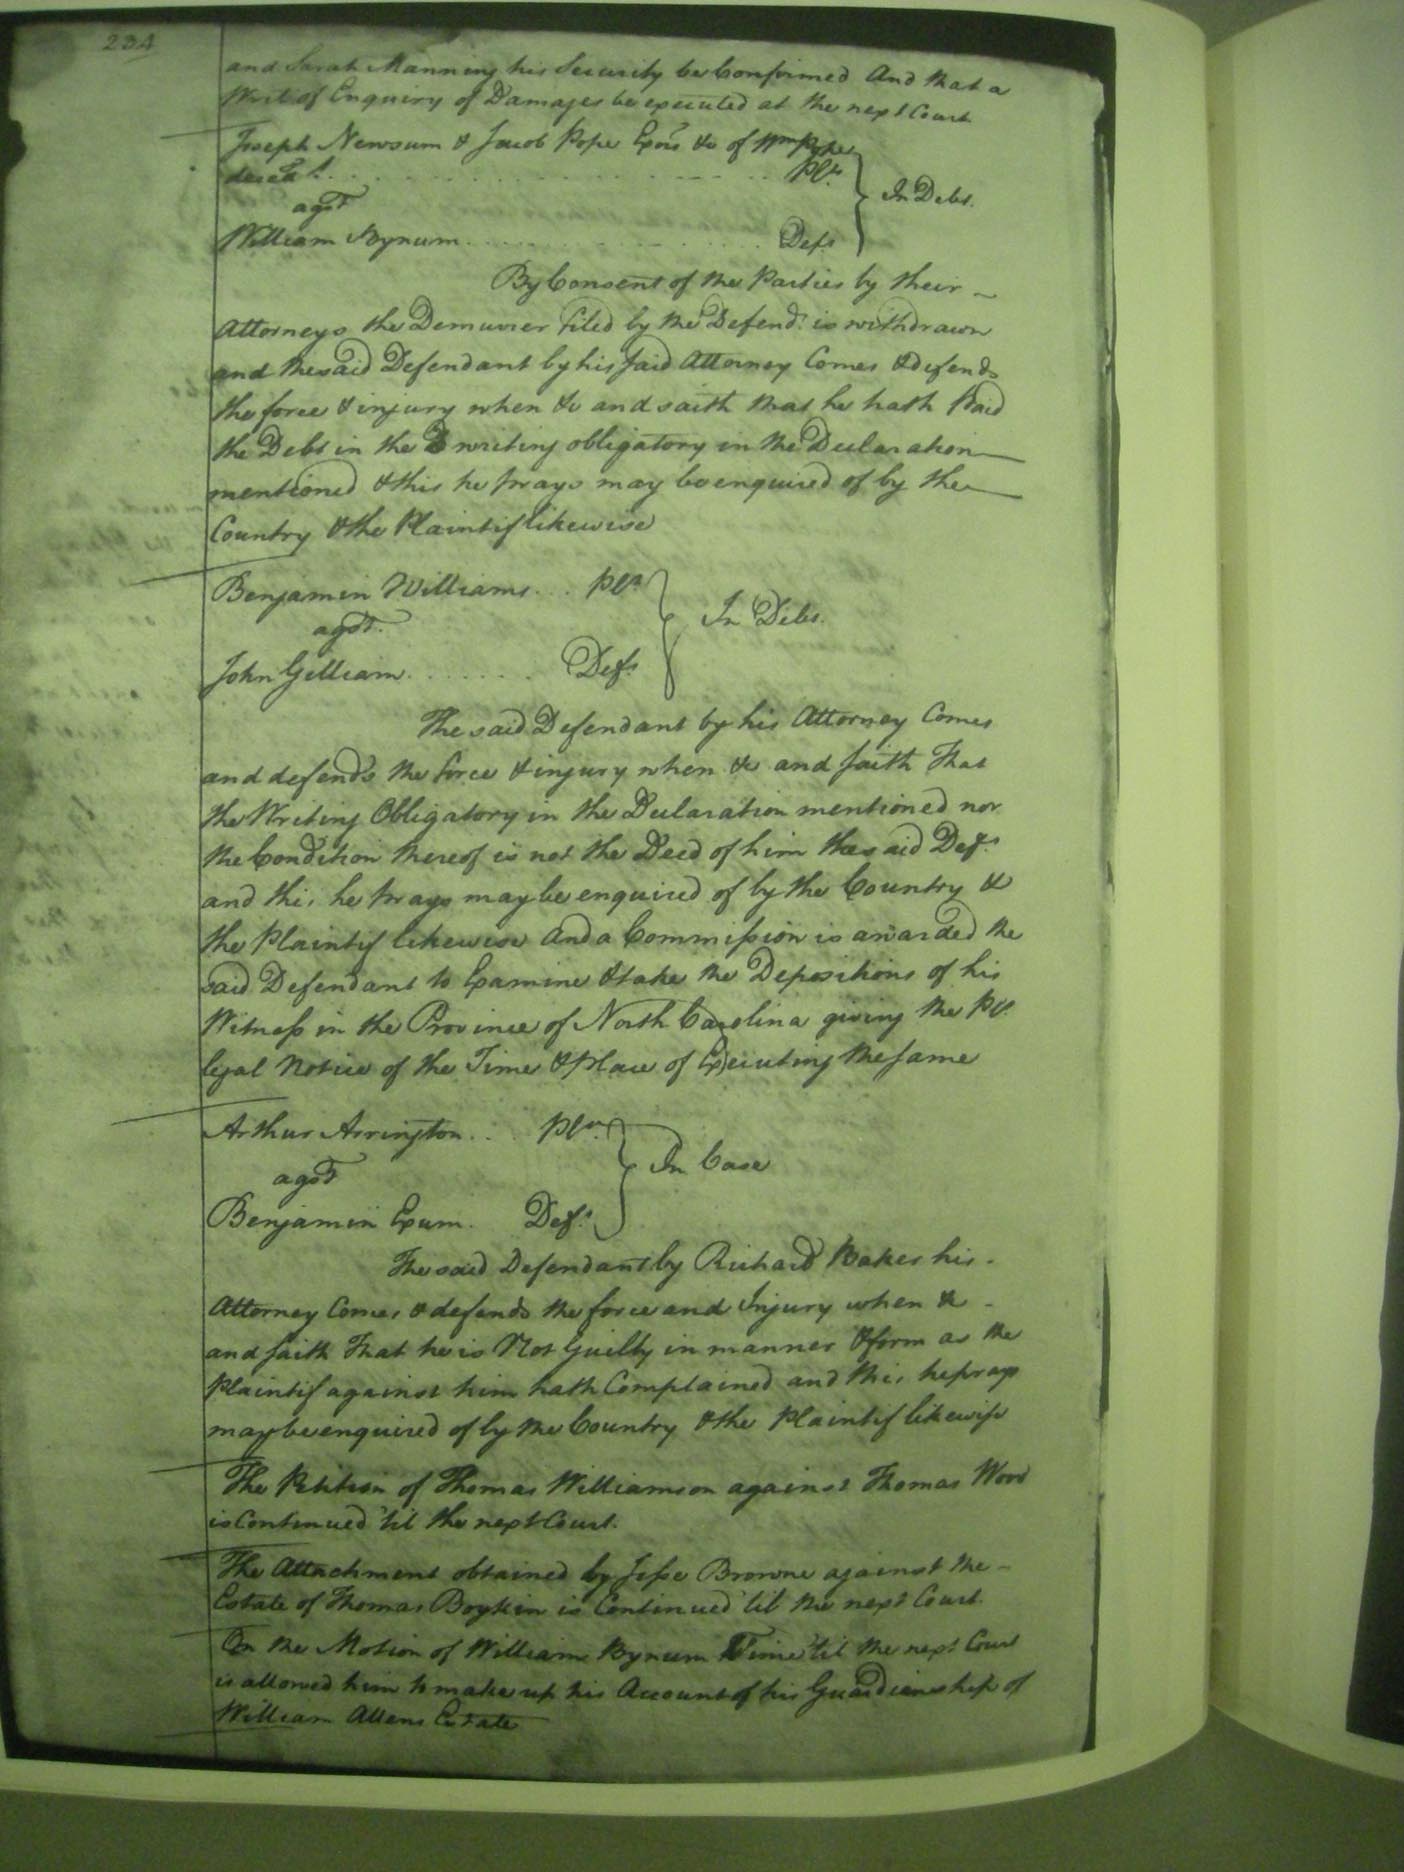 234
and Sarah Manning his Security be Confirmed And that a
Writ of Enquiry of Damages be executed at the next Court
Joseph Newsum & Jacob Pope Exors &c of Wm Pope
deced. Pl.ts
agst
William Bynum Deft
In Debt.
By Consent of the Parties by their
Attorneys the Demurrer filed by the Defend.t is withdrawn
and the said Defendant by his said Attorney Comes & defends
the force & injury when &c and saith that he hath Paid
the Debt in the writing obligatory in the Declaration
mentioned & this he prays may be enquired of by the
Country & the Plaintif likewise
Benjamin Williams Plt
agst.
John Gilliam Deft
In Debt.
The said Defendant by his Attorney Comes
and defends the force & injury when &c and saith That
the Writing Obligatory in the Declaration mentioned nor
the Condition thereof is not the Deed of him the said Def.t
and this he prays may be enquired of by the Country &
the Plaintif likewise And a Commission is awarded the
said Defendant to Examine & take the Depositions of his
Witness in the Province of North Carolina giving the Plt
legal Notice of the Time & Place of Executing the same
Arthur Arrington Plt
agst
Benjamin Exum. Def.t
In Case
The said Defendant by Richard Baker his
Attorney Comes & defends the force and Injury when &c
and saith That he is Not Guilty in manner & form as the
Plaintif against him hath Complained and this he prays
may be enquired of by the Country & the Plaintif likewise
The Petition of Thomas Williamson against Thomas Wood
is Continued 'til the next Court.
The Attachment obtained by Jesse Browne against the
Estate of Thomas Boykin is Continued 'til the next Court.
On the Motion of William Bynum Time 'til the next Court
is allowed him to make up his Account of his Guardianship of
William Allens Estate